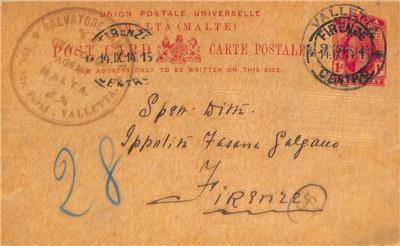 UNION POSTALE UNIVERSELLE
MALTA (MALTE)
POST CARD CARTE POSTALE
ADDRESS ONLY TO BE WRITTEN ON THIS SIDE.
SALVATORE
AGENT
MALTA.
VALLETTA
FIRENZE
14.IX.14.15
CENTRO
VALLETTA
FIRENZE
14.IX.14.15
CENTRO
Spett. Ditta
Ippolito Fasana Galgano
Firenze
28